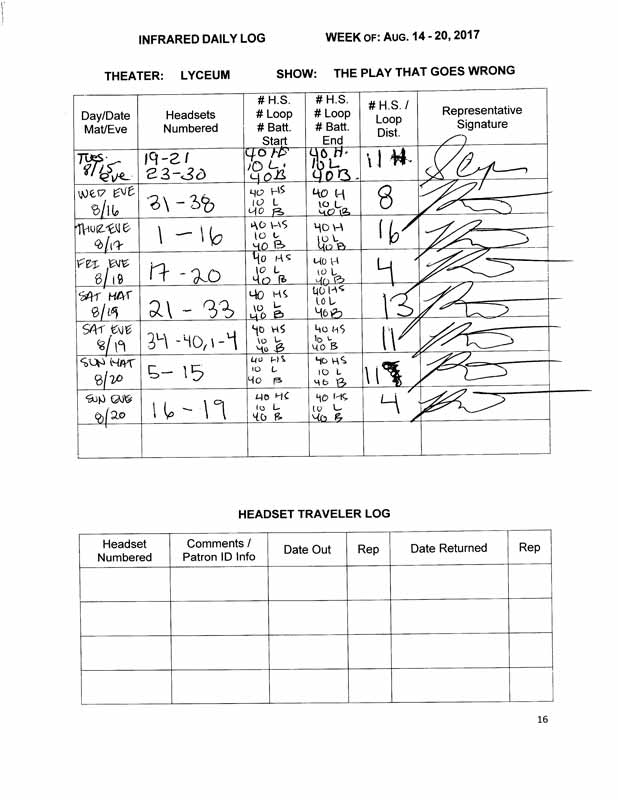 INFRARED DAILY LOG WEEK OF: AUG. 14 - 20, 2017
THEATER: LYCEUM SHOW: THE PLAY THAT GOES WRONG
Day/Date Mat/Eve Headsets Numbered # H.S. # Loop # Batt. Start # H.S. # Loop # Batt. End # H.S. / Loop Dist. Representative Signature
TUES. 8/15 Eve 19-21 23-30 40 HS 10 L. 40B 40 H. 10 L 40B. 11
WED EVE 8/16 31-38 40 HS 10 L 40 B 40 H 10 L 40B 8
THUR EVE 8/17 1-16 40 HS 10 L 40B 40H 10L 40B 16
FRI EVE 8/18 17-20 40 HS 10 L 40 B 40 H 10 L 40 B 4
SAT MAT 8/19 21-33 40 HS 10 L 40 B 40HS 10L 40B 13
SAT EVE 8/19 34-40,1-4 40 HS 10 L 40 B 40 HS 10 L 40 B 11
SUN MAT 8/20 5-15 40 HS 10 L 40 B 40 HS 10 L 40 B 11
SUN EVE 8/20 16-19 40 HS 10 L 40 B 40 HS 10 L 40 B 4
HEADSET TRAVELER LOG
Headset Numbered Comments / Patron ID Info Date Out Rep Date Returned Rep
16